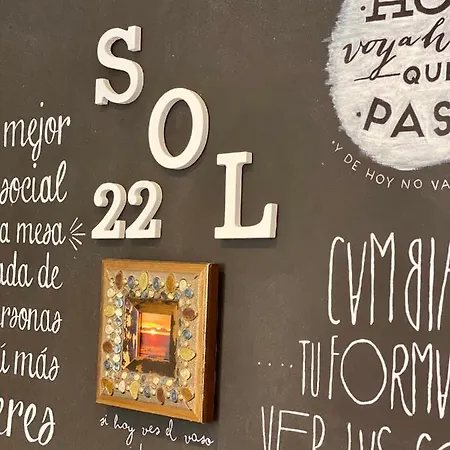 SOL
22
mejor
social
a mesa
ada de
rsonas
ú más
eres
HO
voy a h
QUE
PAS
·Y DE HOY NO VA
CAMBIA
....TU FORMA
VER LAS C
si hoy ves el vaso